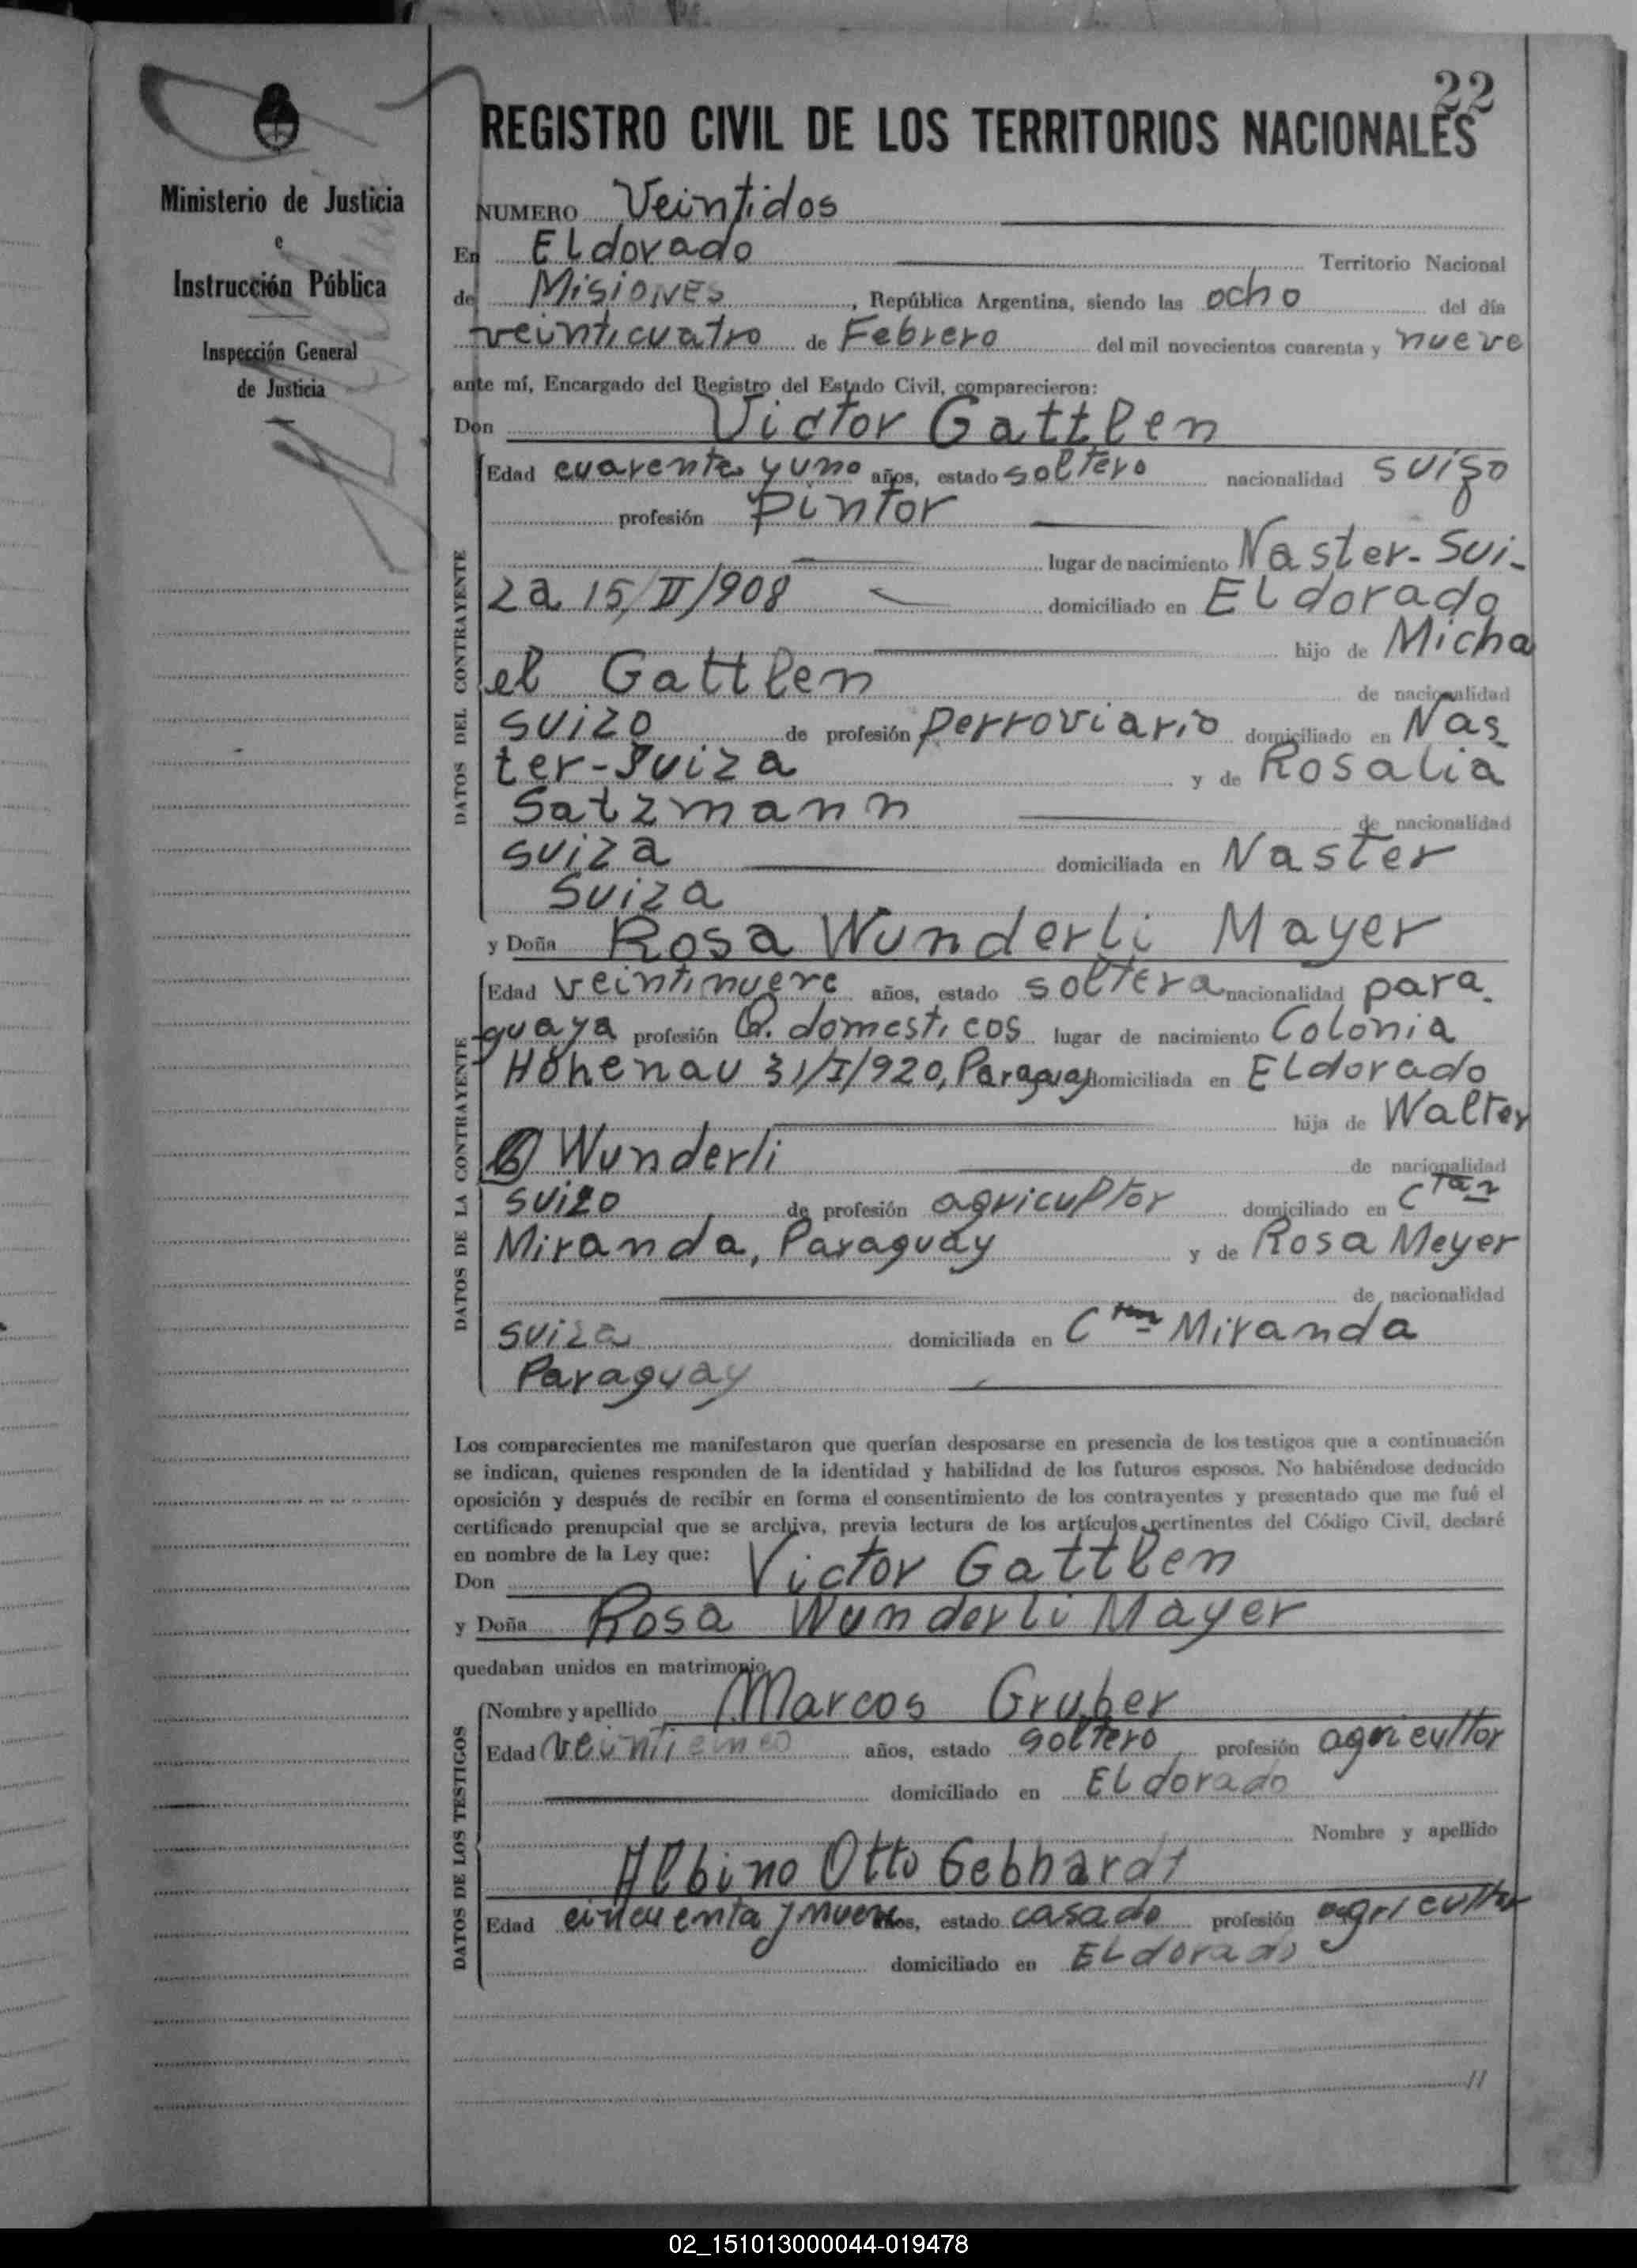 22
REGISTRO CIVIL DE LOS TERRITORIOS NACIONALES
Ministerio de Justicia
e
Instrucción Pública
Inspección General
de Justicia
NUMERO Veintidos
En Eldorado Territorio Nacional
de Misiones, República Argentina, siendo las ocho del día
veinticuatro de Febrero del mil novecientos cuarenta y nueve
ante mí, Encargado del Registro del Estado Civil, comparecieron:
Don Victor Gattlen
DATOS DEL CONTRAYENTE
Edad cuarenta y uno años, estado soltero nacionalidad suizo
profesión pintor
lugar de nacimiento Naster-Sui-
za 15/II/908 domiciliado en Eldorado
hijo de Micha
el Gattlen de nacionalidad
suizo de profesión ferroviario domiciliado en Nas
ter-Suiza y de Rosalia
Satzmann de nacionalidad
suiza domiciliada en Naster
Suiza
y Doña Rosa Wunderli Mayer
DATOS DE LA CONTRAYENTE
Edad veintinueve años, estado soltera nacionalidad para
guaya profesión Q. domesticos lugar de nacimiento Colonia
Hohenau 31/I/920, Paraguay domiciliada en Eldorado
hija de Walter
Wunderli de nacionalidad
suizo de profesión agricultor domiciliado en Ctan
Miranda, Paraguay y de Rosa Meyer
de nacionalidad
suiza domiciliada en Ctan Miranda
Paraguay
Los comparecientes me manifestaron que querían desposarse en presencia de los testigos que a continuación
se indican, quienes responden de la identidad y habilidad de los futuros esposos. No habiéndose deducido
oposición y después de recibir en forma el consentimiento de los contrayentes y presentado que me fué el
certificado prenupcial que se archiva, previa lectura de los artículos pertinentes del Código Civil, declaré
en nombre de la Ley que:
Don Victor Gattlen
y Doña Rosa Wunderli Mayer
quedaban unidos en matrimonio
DATOS DE LOS TESTIGOS
Nombre y apellido Marcos Gruber
Edad veinticinco años, estado soltero profesión agricultor
domiciliado en Eldorado
Nombre y apellido
Albino Otto Gebhardt
Edad cincuenta y nueve años, estado casado profesión agricultor
domiciliado en Eldorado
//
02_151013000044-019478